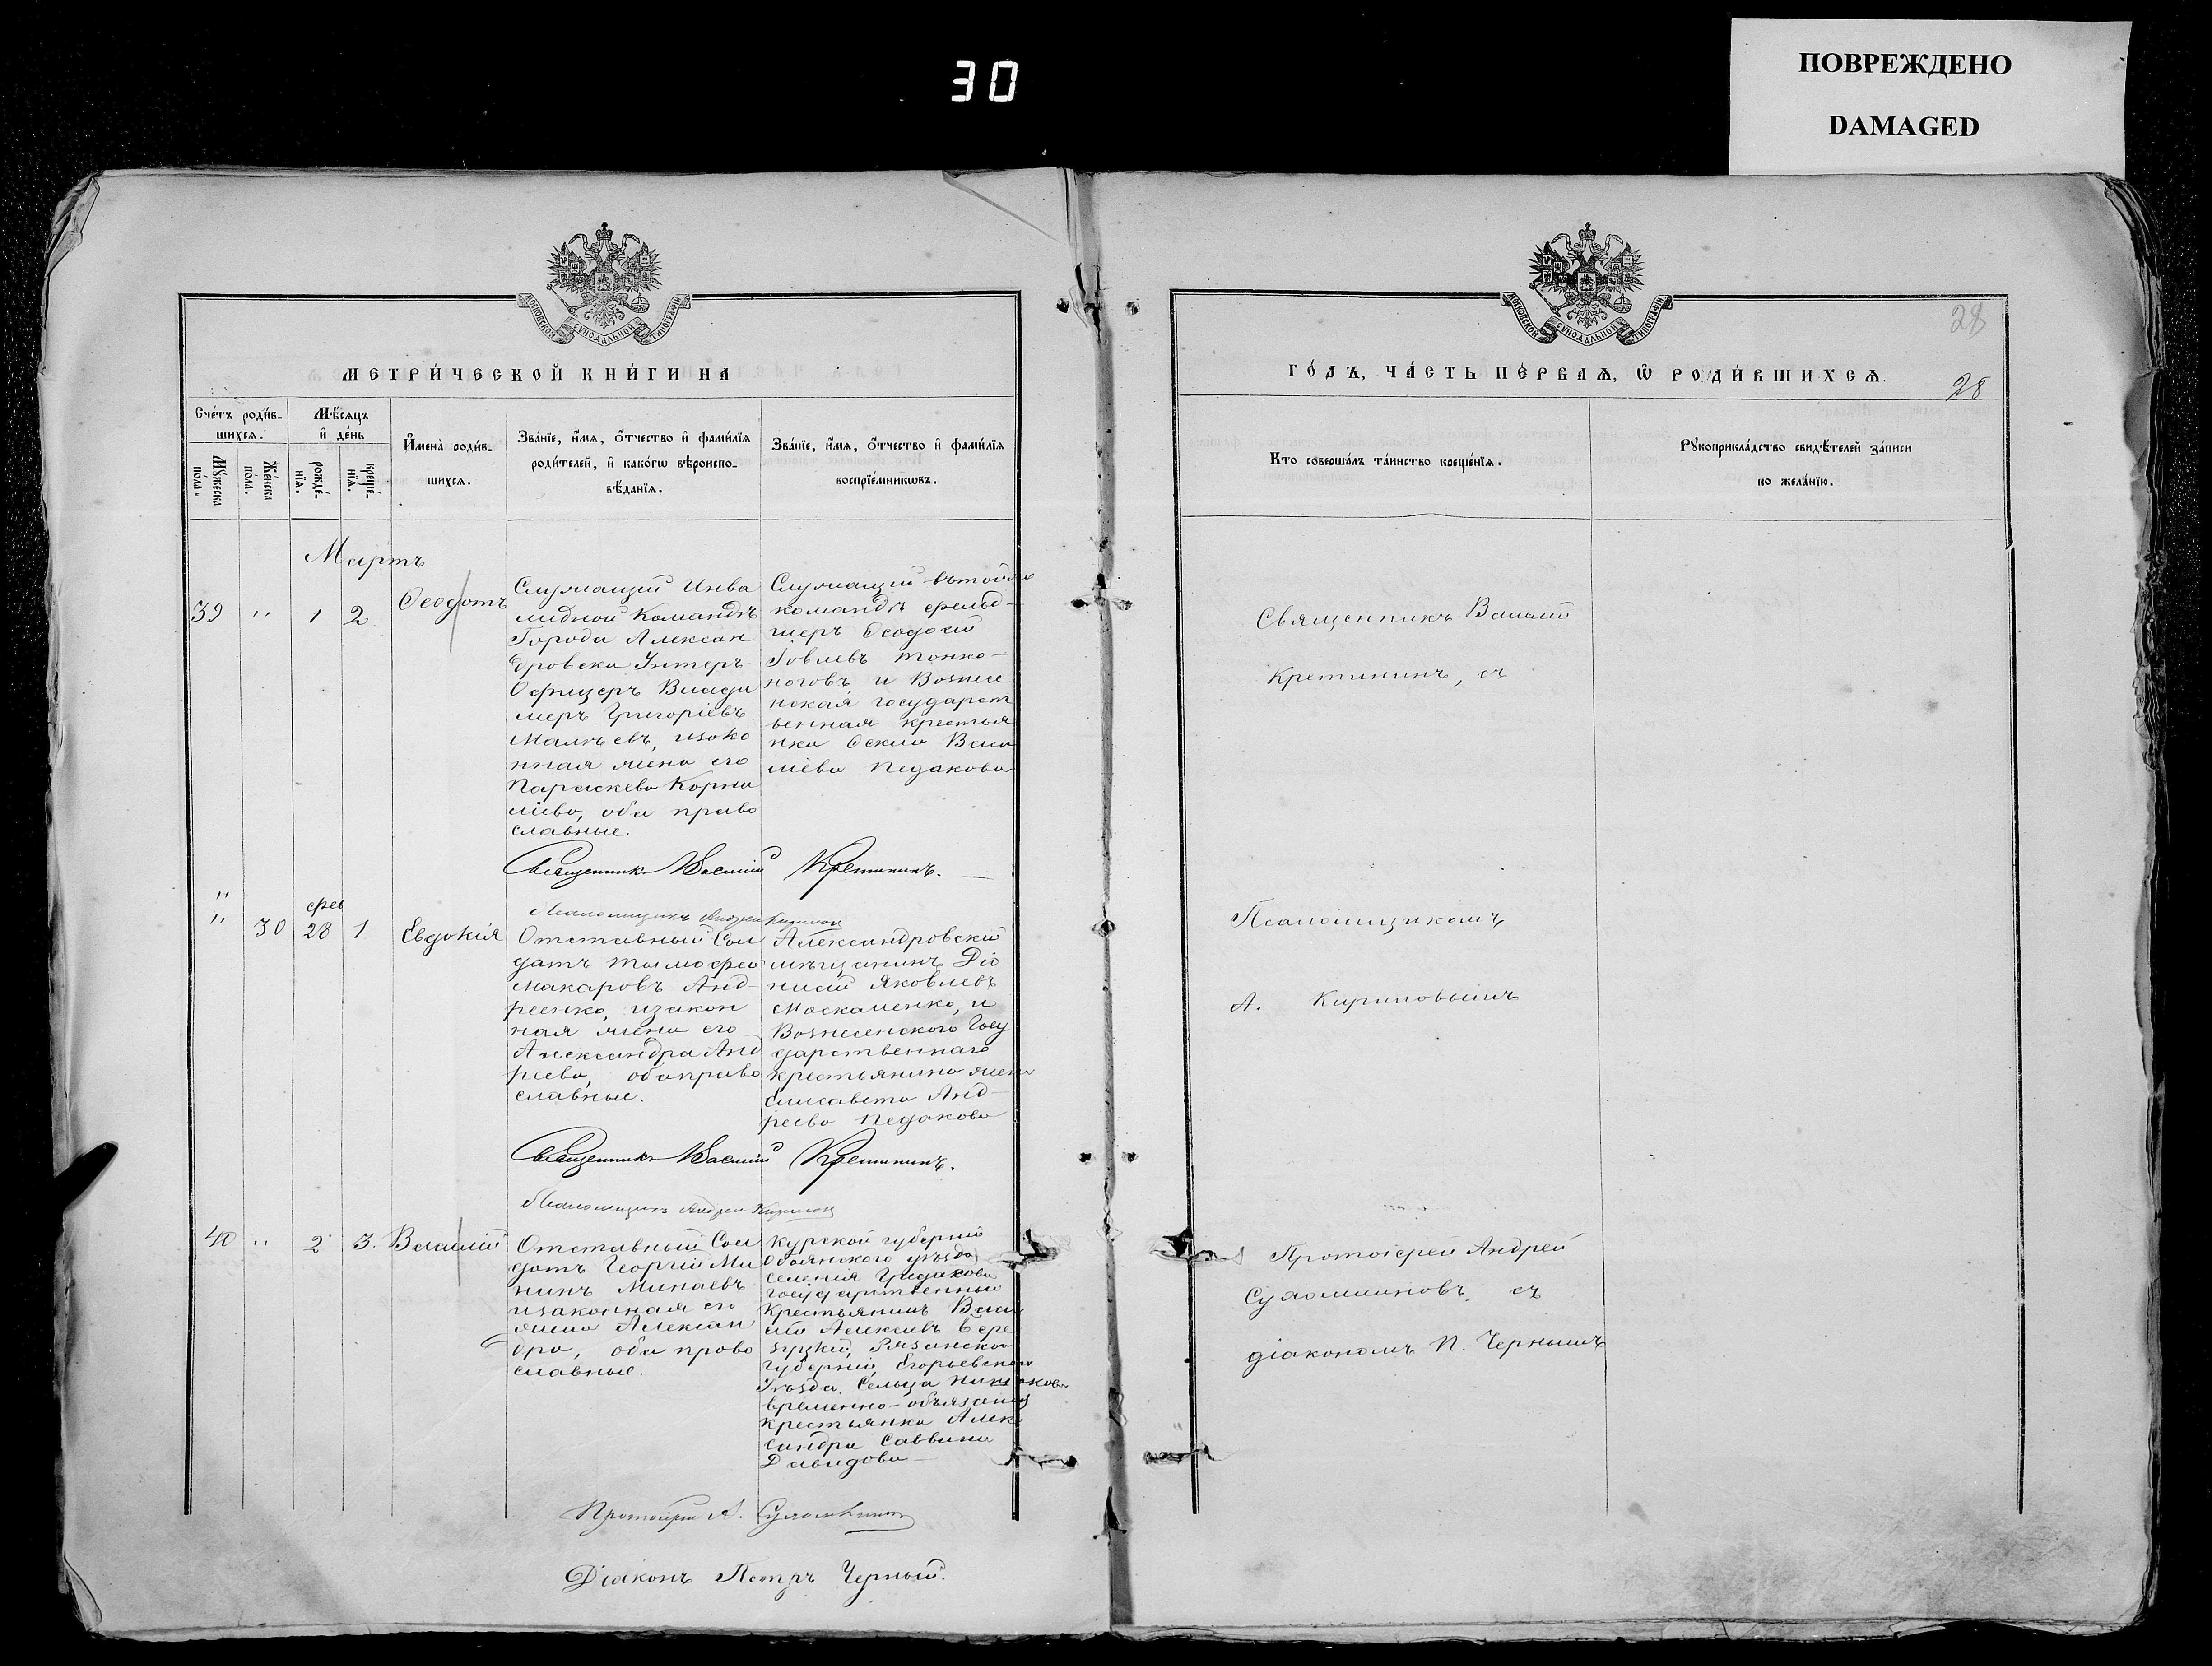 30
ПОВРЕЖДЕНО
DAMAGED
МОСКОВСКОЙ СѴНОДАЛЬНОЙ ТИПОГРАФІИ
МЕТРИ́ЧЕСКОЙ КНИ́ГИ НА
Сче́тъ роди́в-
шихся.
Мѣ́сяцъ
и҆ де́нь
Мꙋ́жеска
по́ла.
Же́нска
по́ла.
рожде́-
нїя.
креще́-
нїя.
И҆мена̀ роди́в-
шихся.
Зва́нїе, и҆́мя, ѻ҆́тчество и҆ фами́лїя
роди́телей, и҆ како́гѡ вѣроиспо-
вѣ́данїя.
Зва́нїе, и҆́мя, ѻ҆́тчество и҆ фами́лїя
воспрїе́мникѡвъ.
Мартъ
39 " 1 2 Ѳеодотъ
Служащій Инва
лидной Командѣ
Города Алексан
дровска Унтеръ
Офицеръ Влади
меръ Григоріевъ
Малѣевъ, изако
нная жена его
Параскева Корни
ліева, оба право
славные.
Служащій втойже
командѣ фельд-
шеръ Ѳеодосій
Іовлевъ Тонко-
ноговъ и Вознесе
нская государст
венная крестья
нка Ѳекла Васи
ліева Педакова
Священникъ Василій Кретининъ.
Псаломщикъ Андрей Кириловъ
" 
" 30 фев 28 1 Евдокія
Отставный Сол
датъ Тимофей
Макаровъ Анд-
реенко, изакон
ная жена его
Александра Анд
реева, обаправо
славные.
Александровскій
мѣщанинъ Діо
нисій Яковлевъ
Москаленко, и
Вознесенского Госу
дарственнаго
крестьянина жена
Елисавета Анд-
реева Педакова
Священникъ Василій Кретининъ.
Псаломщикъ Андрей Кириловъ
40 " 2 3. Василій
Отставный Сол
датъ Георгій Ми
нинъ Минаевъ
изаконная его
жена Алексан
дра, оба право
славные.
Курской губерніи
Обоянского уѣзда
селенія Гридакова
Государственный
Крестьянинъ Васи
лій Алексѣевъ
Рязанской
губерніи, Егорьевского
Уѣзда. Сельца
временно-обязаная
Крестьянка Алек
сандра Саввина
Давидова
Протоіерей А. Суломиновъ
Діаконъ Петръ Черный.
МОСКОВСКОЙ СѴНОДАЛЬНОЙ ТИПОГРАФІИ
28
ГО́ДЪ, ЧА́СТЬ ПЕ́РВАЯ, Ѡ҆ РОДИ́ВШИХСЯ.
28
Кто соверша́лъ та́инство креще́нїя.
Рꙋкоприкла́дство свидѣ́телей за́писи
по жела́нїю.
Священникъ Василій
Кретининъ, съ
Псаломщикомъ
А. Кириловымъ
Протоіерей Андрей
Суломиновъ съ
діакономъ П. Чернымъ